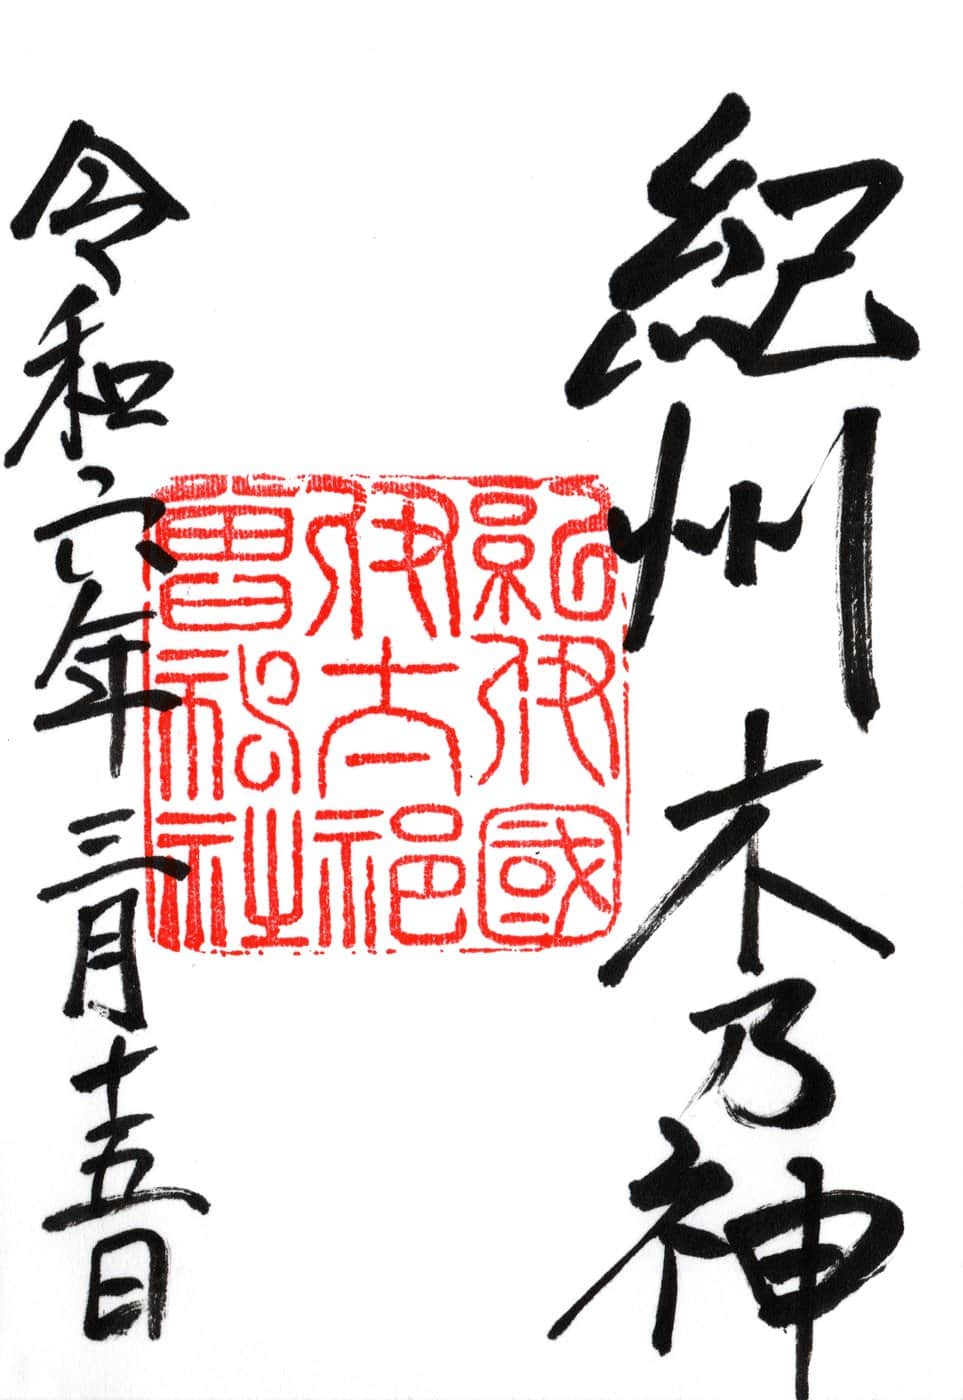 紀州木乃神
紀伊國
伊太祁
曾神社
令和六年三月十五日